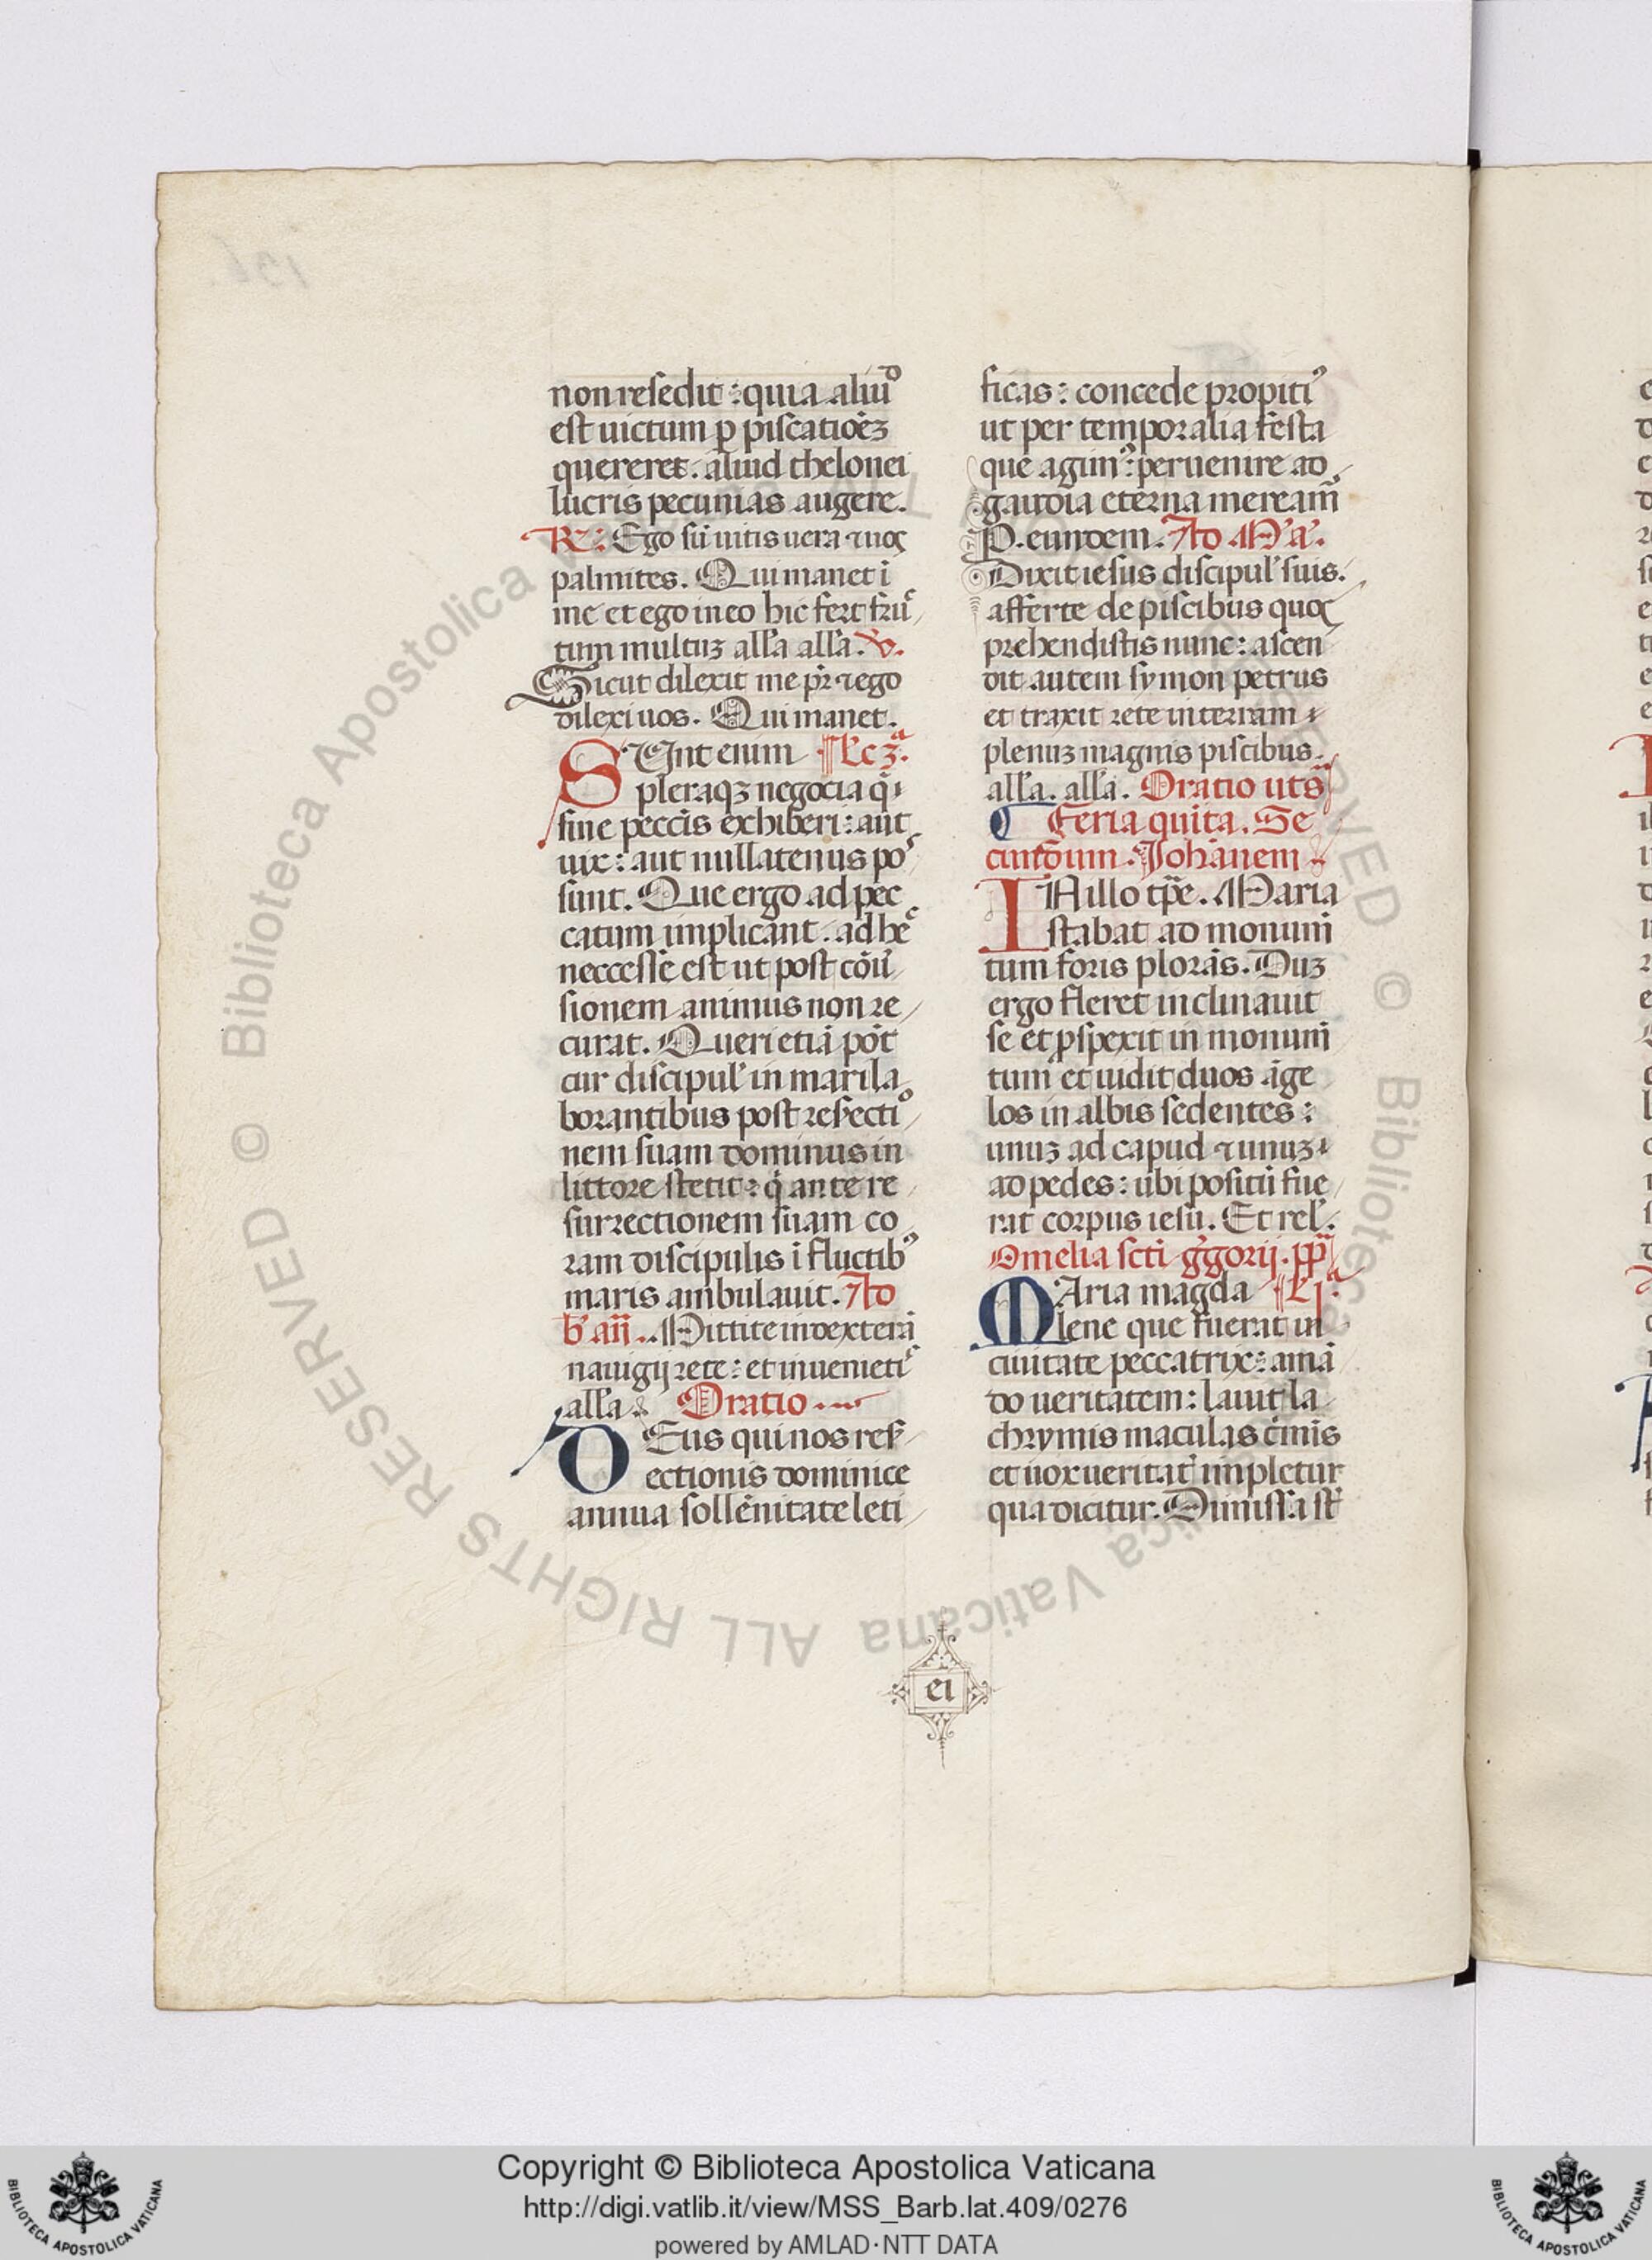 non resedit: quia aliuᵭ
est uictum ꝓ piscatioēꝫ
quereret. aliud thelonei
lucris pecunias augere.
℟. Ego sū uitis uera ⁊ uoꝫ
palmites. Qui manet ī
me et ego in eo hic fert fruc
tum multuꝫ all'a all'a. ℣.
Sicut dilexit me pr̄ ⁊ ego
dilexi uos. Qui manet.
SUnt enim Lc̄ 3ª
pleraqꝫ negocia q̄
sine peccīs exhiberi: aut
uix: aut nullatenus pos
sunt. Que ergo ad pec
catum implicant. ad hec
neccesse est ut post cōū
sionem animus non re
curat. Queri etiā pōt
cur discipul' in mari la
borantibus post resectio
nem suam dominus in
littore stetit: q̄ ante re
surrectionem suam co
ram discipulis ī fluctib⁹
maris ambulauit. Ad
b' añ. Mittite in dexterā
nauigij rete: et inuenietis
all'a. Oratio
DEus qui nos res
ectionis dominice
annua sollēnitate leti
ficas: concede propiti⁹
ut per temporalia festa
que agim⁹: peruenire ad
gaudia eterna meream̄
P. eundem. Ad Mª.
Dixit iesus discipul' suis.
afferte de piscibus quoꝫ
prehendistis nunc: ascen
dit autem symon petrus
et traxit rete in terram
plenuꝫ magnis piscibus.
all'a. all'a. Oratio ut sª
¶ Feria quīta. Se
cundum Johānem
IN illo tp̄e. Maria
stabat ad monum̄
tum foris plorās. Duꝫ
ergo fleret inclinauit
se et ꝓspexit in monum̄
tum et uidit duos āge
los in albis sedentes:
unuꝫ ad capud ⁊ unuꝫ
ad pedes: ubi positū fue
rat corpus iesu. Et rel'.
Omelia scti g̃gorij. pp̄
MAria magda Lj ª
lene que fuerat in
ciuitate peccatrix: amā
do ueritatem: lauit la
chrymis maculas c̄mīs
et uox ueritat̄ impletur
qua dicitur. Dimissa sī
ei
© Biblioteca Apostolica Vaticana ALL RIGHTS RESERVED
Copyright © Biblioteca Apostolica Vaticana
http://digi.vatlib.it/view/MSS_Barb.lat.409/0276
powered by AMLAD·NTT DATA
BIBLIOTECA APOSTOLICA VATICANA
BIBLIOTECA APOSTOLICA VATICANA